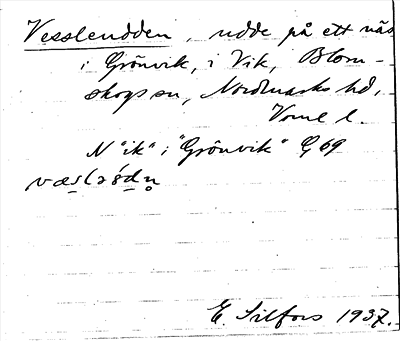 Vesslendden, udde på ett näs
i Grönvik, i Vik, Blom-
skogs sn, Nordmarks hd,
Verml l.
N "ik" i "Grönvik" G 69
E. Silfors 1937.